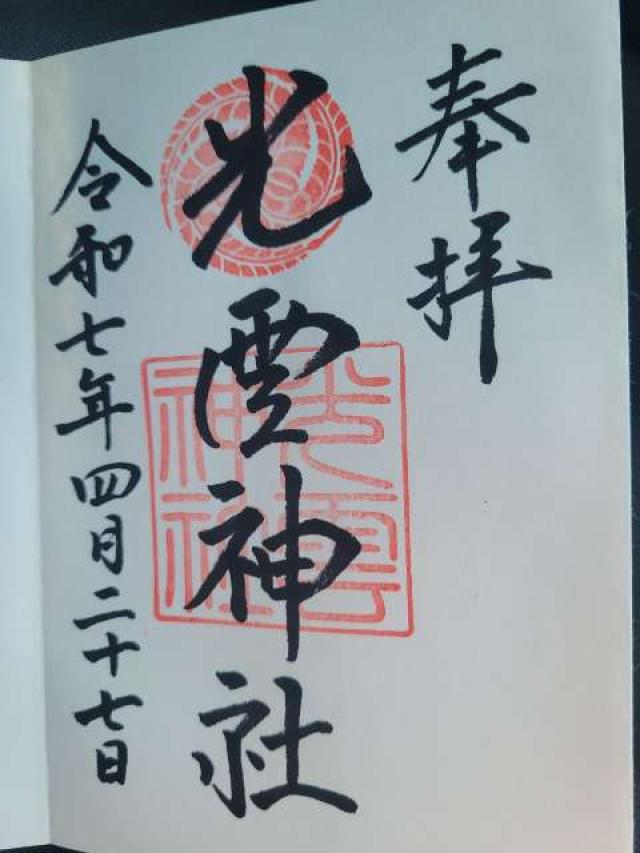 奉拝
光雲神社
光雲神社
令和七年四月二十七日